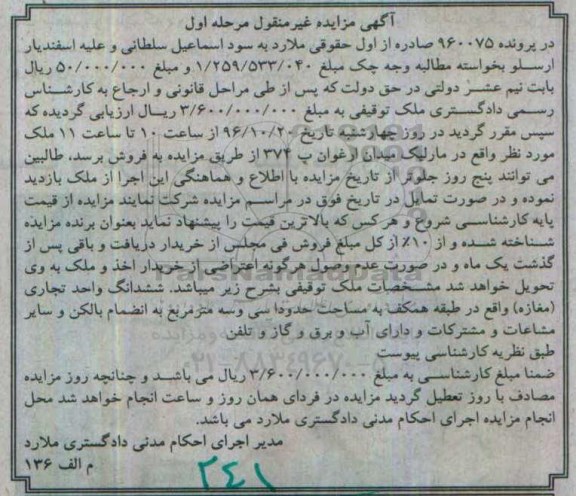 آگهی مزایده غیرمنقول مرحله اول
در پرونده ۹۶۰۰۷۵ صادره از اول حقوقی ملارد به سود اسماعیل سلطانی و علیه اسفندیار
ارسلو بخواسته مطالبه وجه چک مبلغ ۱/۲۵۹/۵۳۳/۰۴۰ و مبلغ ۵۰/۰۰۰/۰۰۰ ریال
بابت نیم عشر دولتی در حق دولت که پس از طی مراحل قانونی و ارجاع به کارشناس
رسمی دادگستری ملک توقیفی به مبلغ ۳/۶۰۰/۰۰۰/۰۰۰ ریال ارزیابی گردیده که
سپس مقرر گردید در روز چهارشنبه تاریخ ۹۶/۱۰/۲۰ از ساعت ۱۰ تا ساعت ۱۱ ملک
مورد نظر واقع در مارلیک میدان ارغوان پ ۳۷۴ از طریق مزایده به فروش برسد، طالبین
می توانند پنج روز جلوتر از تاریخ مزایده با اطلاع و هماهنگی این اجرا از ملک بازدید
نموده و در صورت تمایل در تاریخ فوق در مراسم مزایده شرکت نمایند مزایده از قیمت
پایه کارشناسی شروع و هر کس که بالاترین قیمت را پیشنهاد نماید بعنوان برنده مزایده
شناخته شده و از ۱۰٪ از کل مبلغ فروش فی مجلس از خریدار دریافت و باقی پس از
گذشت یک ماه و در صورت عدم وصول هرگونه اعتراضی از خریدار اخذ و ملک به وی
تحویل خواهد شد مشخصات ملک توقیفی بشرح زیر میباشد. ششدانگ واحد تجاری
(مغازه) واقع در طبقه همکف به مساحت حدودا سی وسه مترمربع به انضمام بالکن و سایر
مشاعات و مشترکات و دارای آب و برق و گاز و تلفن
طبق نظریه کارشناسی پیوست
ضمنا مبلغ کارشناسی به مبلغ ۳/۶۰۰/۰۰۰/۰۰۰ ریال می باشد و چنانچه روز مزایده
مصادف با روز تعطیل گردید مزایده در فردای همان روز و ساعت انجام خواهد شد محل
انجام مزایده اجرای احکام مدنی دادگستری ملارد می باشد.
مدیر اجرای احکام مدنی دادگستری ملارد
م الف ۱۳۶
۲۴۱